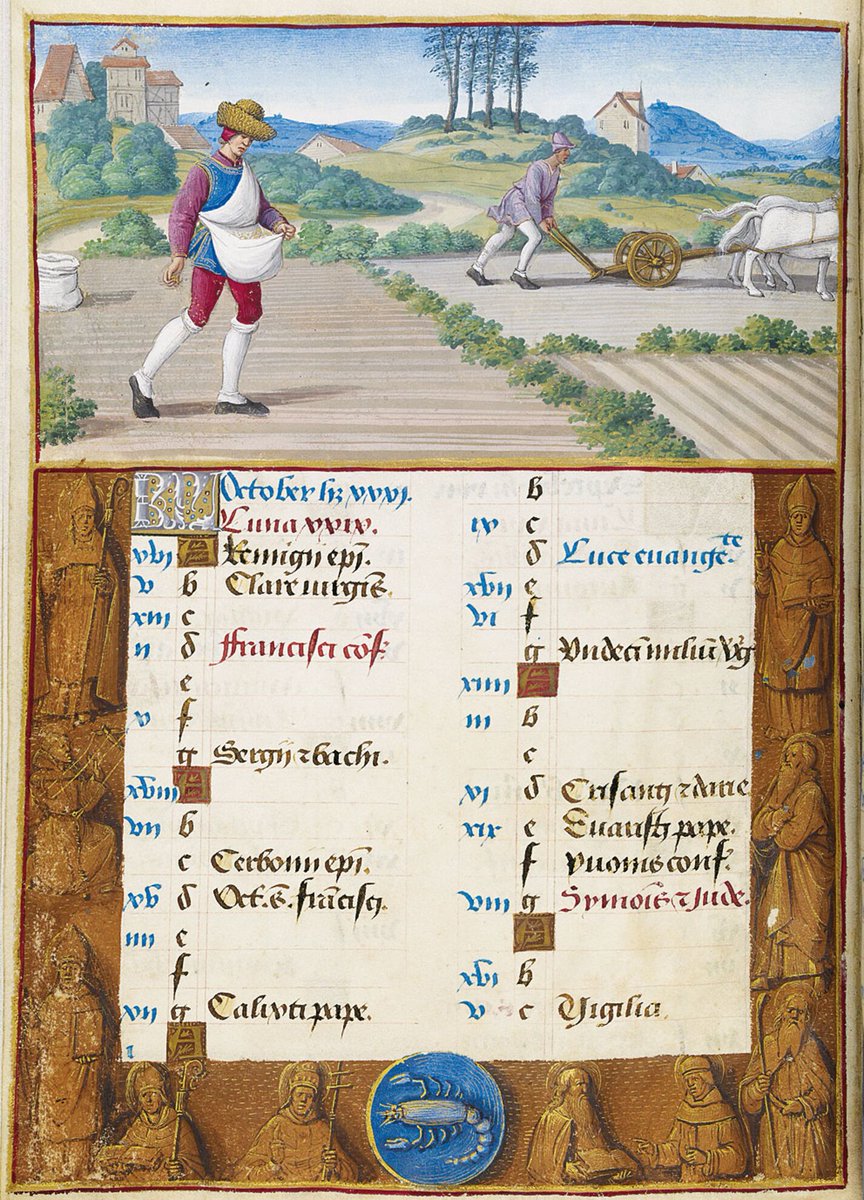 KL October hz xxxi.
Luna xxix.
xvi A Remigii epi.
v b Clare virgis.
xiii c
ii d Francisci cōf.
e
x f
g Sergii ⁊ bachi.
xviii A
vii b
c Cerbonii epi.
xv d Oct. s. francisci.
iiii e
f
xii g Calixti pape.
i A
b
ix c
d Luce evangeᵗᵉ.
xvii e
vi f
g Undeci miliū v͞g
xiiii A
iii b
c
xi d Crisanti ⁊ darie
xix e Evaristi pape.
f yvonis conf.
viii g Symois ⁊ Jude.
A
xvi b
v c Vigilia.